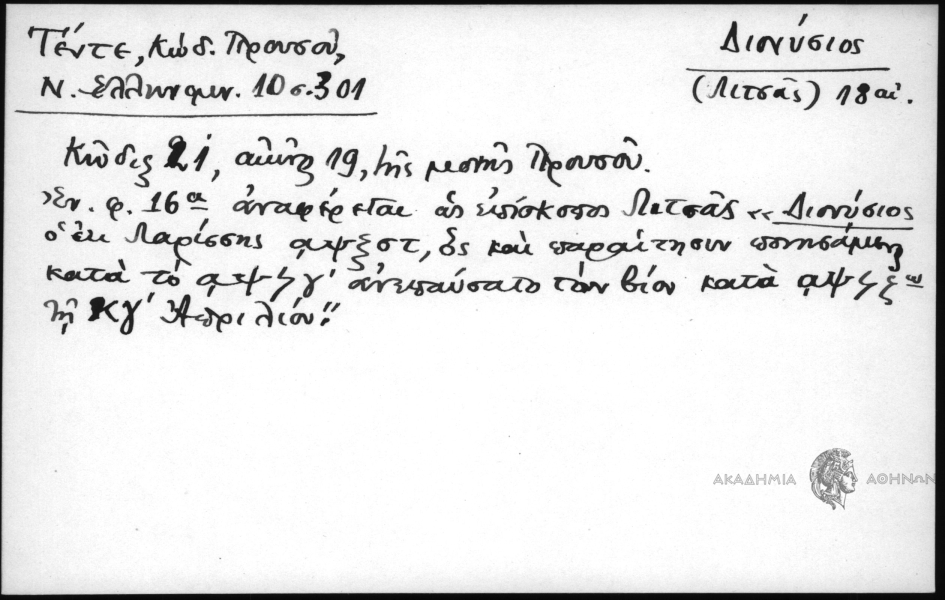 Τέντε, Κώδ. Προυσοῦ,
Ν. Ἑλληνομν. 10 σ. 301
Διονύσιος
(Λιτσᾶς) 18 αἰ.
Κῶδιξ 21, αἰῶνος 19, τῆς μονῆς Προυσοῦ.
Ἐν φ. 16α ἀναφέρεται ὡς ἐπίσκοπος Λιτσᾶς «Διονύσιος
ὁ ἐκ Λαρίσσης ͵αψξστ, ὃς καὶ παραίτησιν ποιησάμενος
κατὰ τὸ ͵αψϟγ' ἀνεπαύσατο τὸν βίον κατὰ ͵αψϟξ
τῇ κγ' Ἀπριλίου."
ΑΚΑΔΗΜΙΑ ΑΘΗΝΩΝ